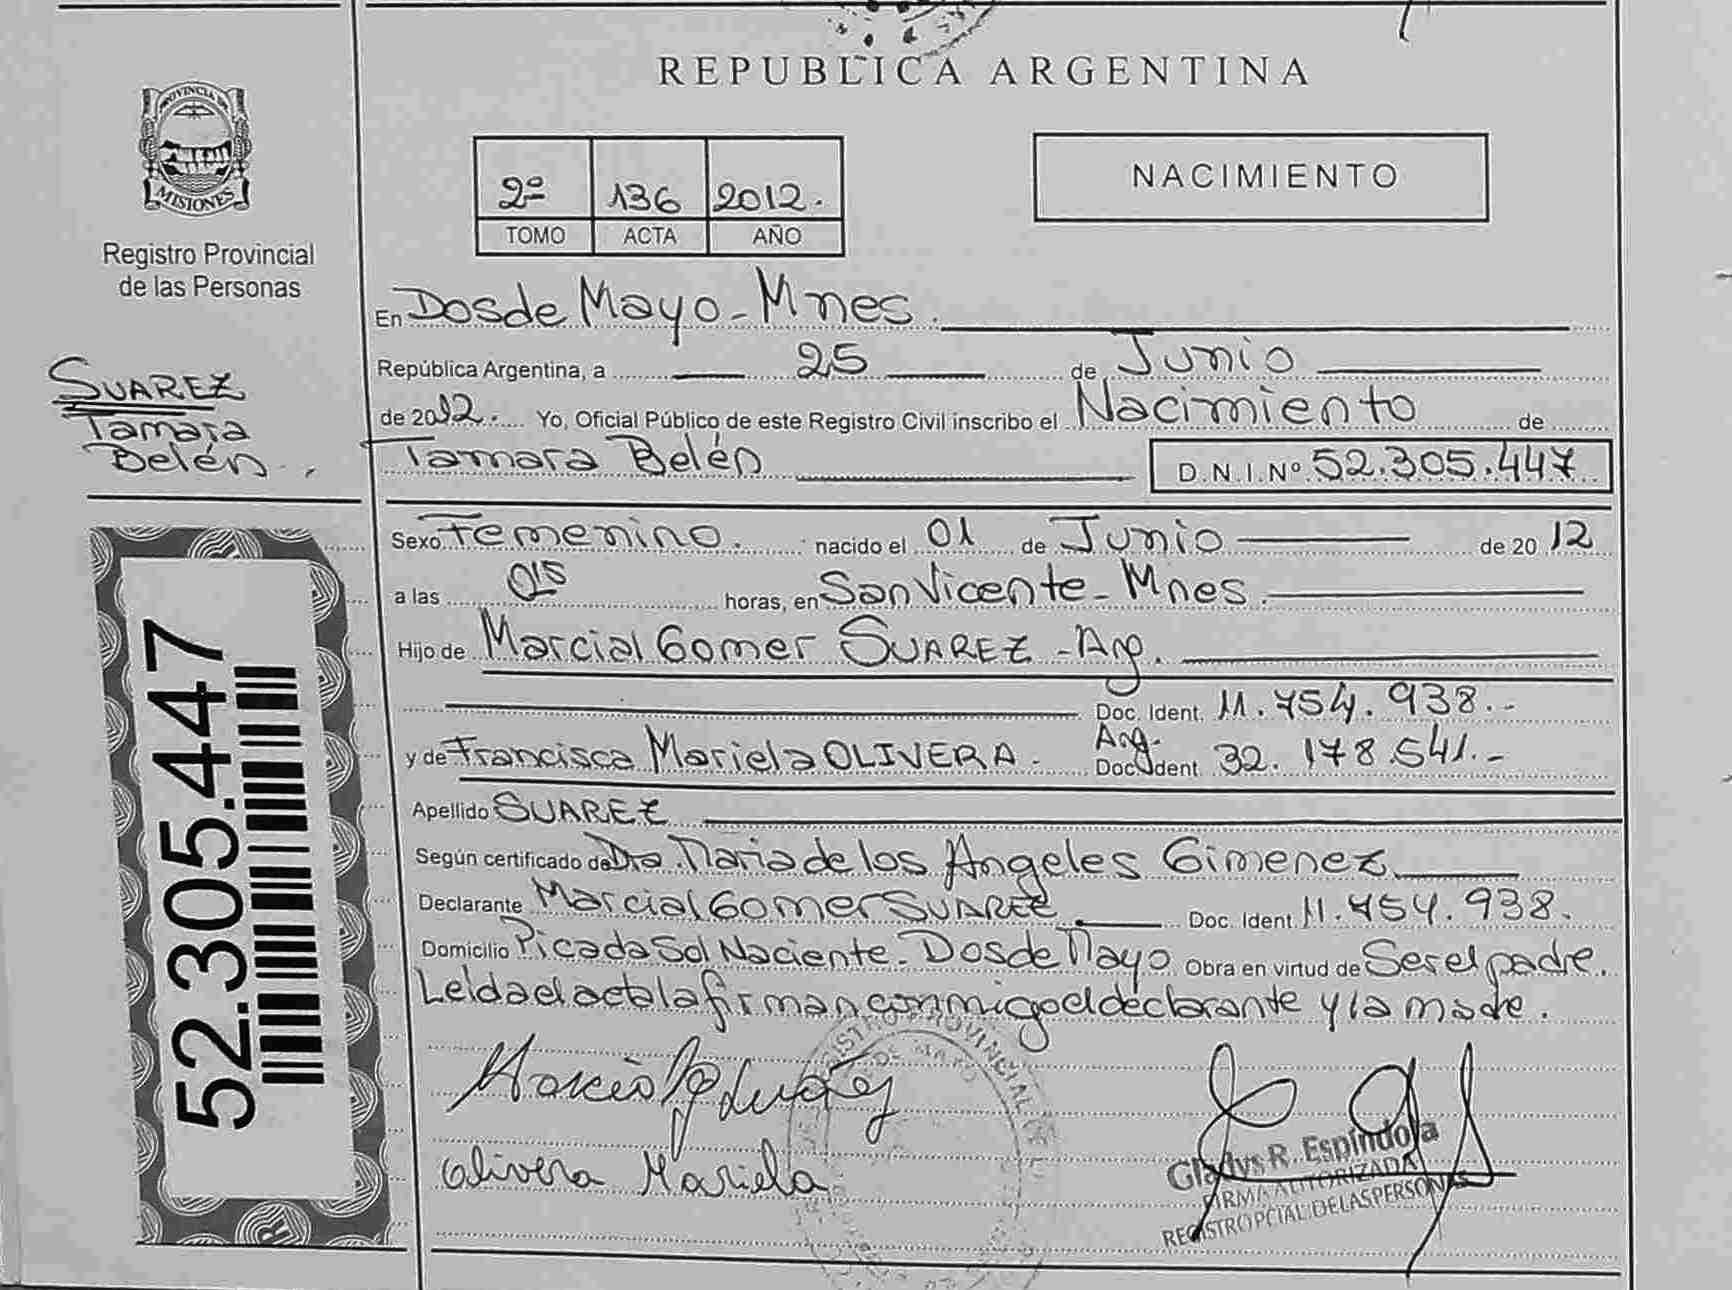 REPUBLICA ARGENTINA
PROVINCIA DE
MISIONES
Registro Provincial
de las Personas
2º 136 2012.
TOMO ACTA AÑO
NACIMIENTO
SUAREZ
Tamara
Belén.
En Dos de Mayo - Mnes.
República Argentina, a 25 de Junio
de 2012. Yo, Oficial Público de este Registro Civil inscribo el Nacimiento de
Tamara Belén D.N.I.Nº 52.305.447
Sexo Femenino. nacido el 01 de Junio de 2012
a las 015 horas, en San Vicente - Mnes.
Hijo de Marcial Gomer SUAREZ - Arg.
Doc. Ident. 11.754.938.-
y de Francisca Mariela OLIVERA. Arg. Doc. Ident 32.178.541.-
Apellido SUAREZ
Según certificado de Dra. Maria de los Angeles Gimenez
Declarante Marcial Gomer SUAREZ. Doc. Ident 11.754.938.
Domicilio Picada Sol Naciente - Dos de Mayo Obra en virtud de Ser el padre.
Leída el acta la firman conmigo el declarante y la madre.
52.305.447
Olivera Mariela
Gladys R. Espíndola
FIRMA AUTORIZADA
REGISTRO PCIAL. DE LAS PERSONAS